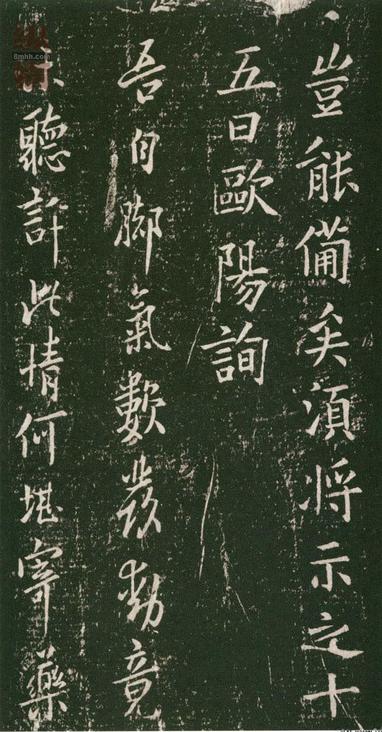 、豈能備矣須將示之十
五日歐陽詢
吾自脚氣數發動竟
聽許此情何堪寄藥
8mhh.com